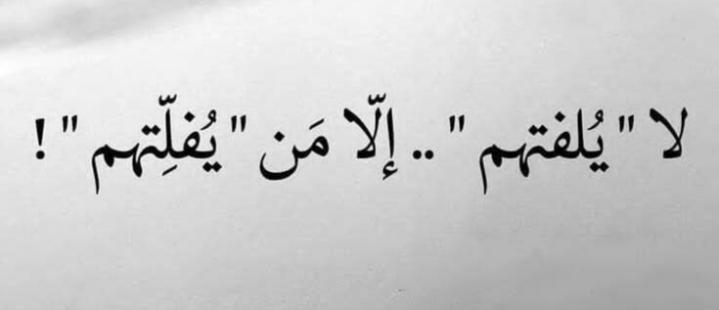 لا "يُلفتهم" .. إلّا مَن "يُفلِّتهم" !